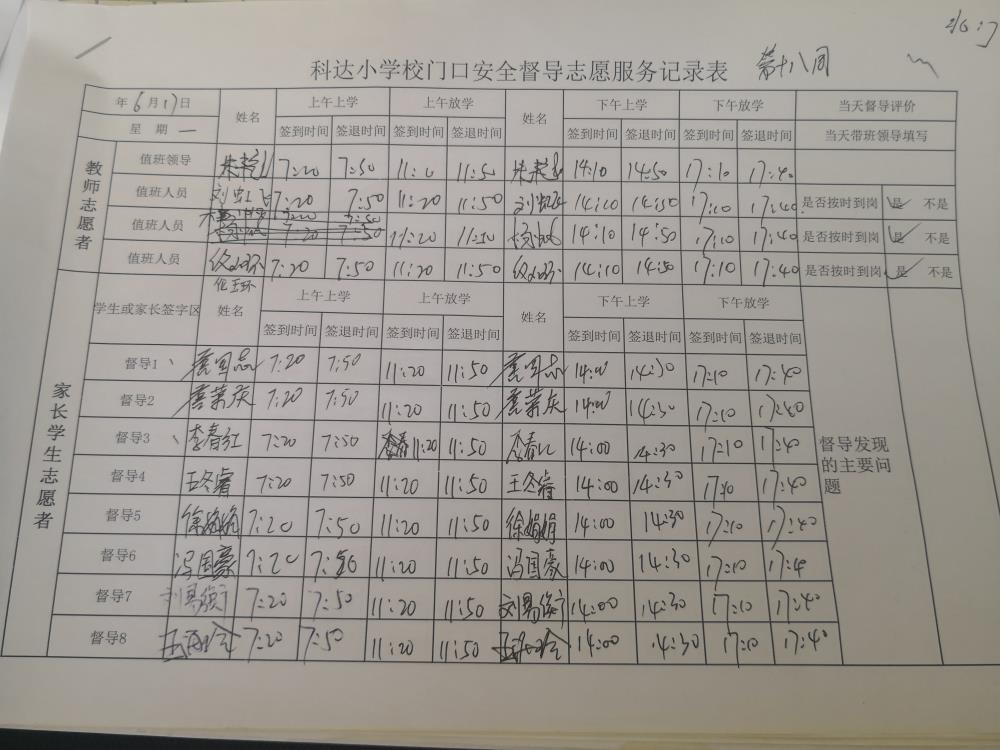 科达小学校门口安全督导志愿服务记录表 第十八周
年6月17日 姓名 上午上学 上午放学 姓名 下午上学 下午放学 当天督导评价
星期一 签到时间 签退时间 签到时间 签退时间 签到时间 签退时间 签到时间 签退时间 当天带班领导填写
教师志愿者
值班领导 7:20 7:50 11:50 14:10 14:50 17:10 17:40
值班人员 7:20 7:50 11:20 11:50 14:10 14:50 17:10 17:40 是否按时到岗 是 不是
值班人员 7:20 7:50 11:20 14:10 14:50 17:10 17:40 是否按时到岗 是 不是
值班人员 7:20 7:50 11:20 11:50 14:10 14:50 17:10 17:40 是否按时到岗 是 不是
家长学生志愿者
学生或家长签字区 姓名 上午上学 上午放学 姓名 下午上学 下午放学
签到时间 签退时间 签到时间 签退时间 签到时间 签退时间 签到时间 签退时间
督导1 7:20 7:50 11:20 11:50 14:00 14:30 17:10 17:40
督导2 7:20 7:50 11:20 11:50 14:00 14:30 17:10 17:40
督导3 李春红 7:20 7:50 李春 11:20 11:50 李春红 14:00 14:30 17:10 17:40
督导4 王冬睿 7:20 7:50 11:20 11:50 王冬睿 14:00 14:30 17:10 17:40
督导5 徐娟娟 7:20 7:50 11:20 11:50 徐娟娟 14:00 14:30 17:10 17:40
督导6 冯国豪 7:20 7:50 11:20 11:50 冯国豪 14:00 14:30 17:10 17:40
督导7 7:20 7:50 11:20 11:50 14:00 14:30 17:10 17:40
督导8 7:20 7:50 11:20 11:50 14:00 14:30 17:10 17:40
督导发现
的主要问
题